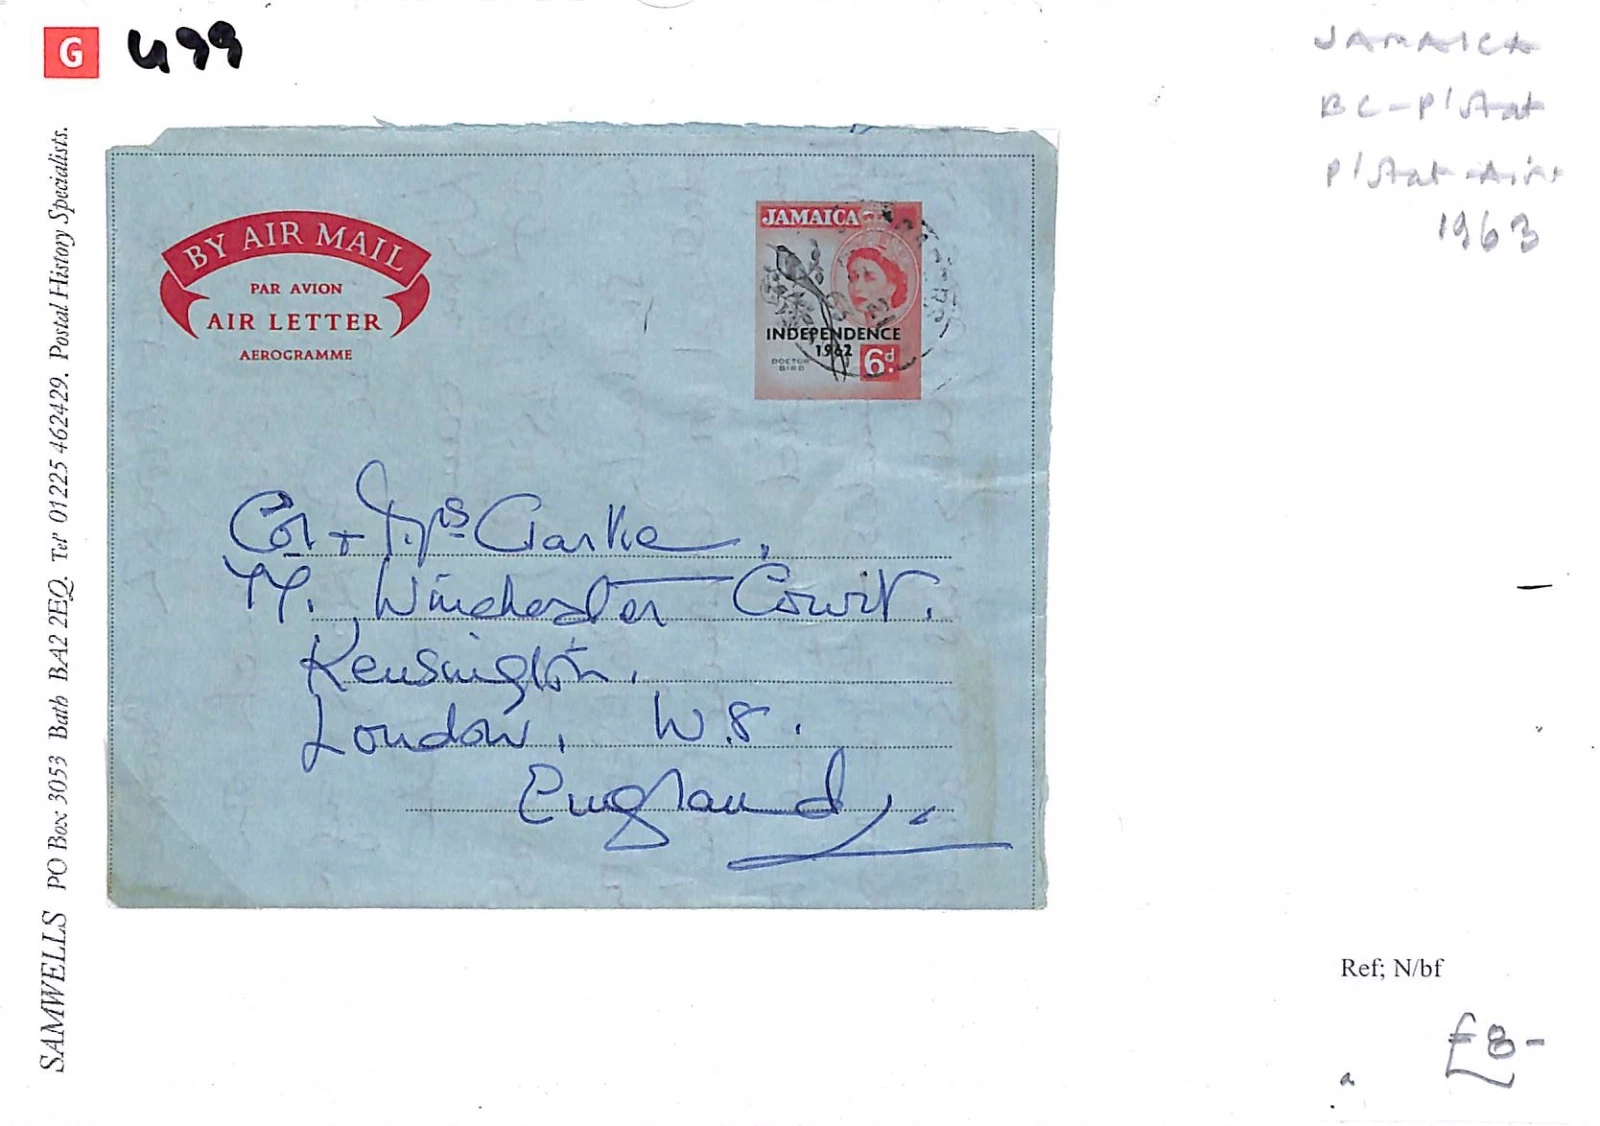 G 499
JAMAICA
BC-P'Stat
P'Stat-Air
1963
SAMWELLS PO Box 3053 Bath BA2 2EQ. Tel' 01225 462429. Postal History Specialists.
BY AIR MAIL
PAR AVION
AIR LETTER
AEROGRAMME
JAMAICA
INDEPENDENCE
1962
DOCTOR
BIRD
6d.
Col + Mrs Clarke,
Winchester Court.
Kensington.
London, W.8.
England.
Ref; N/bf
£8-
a